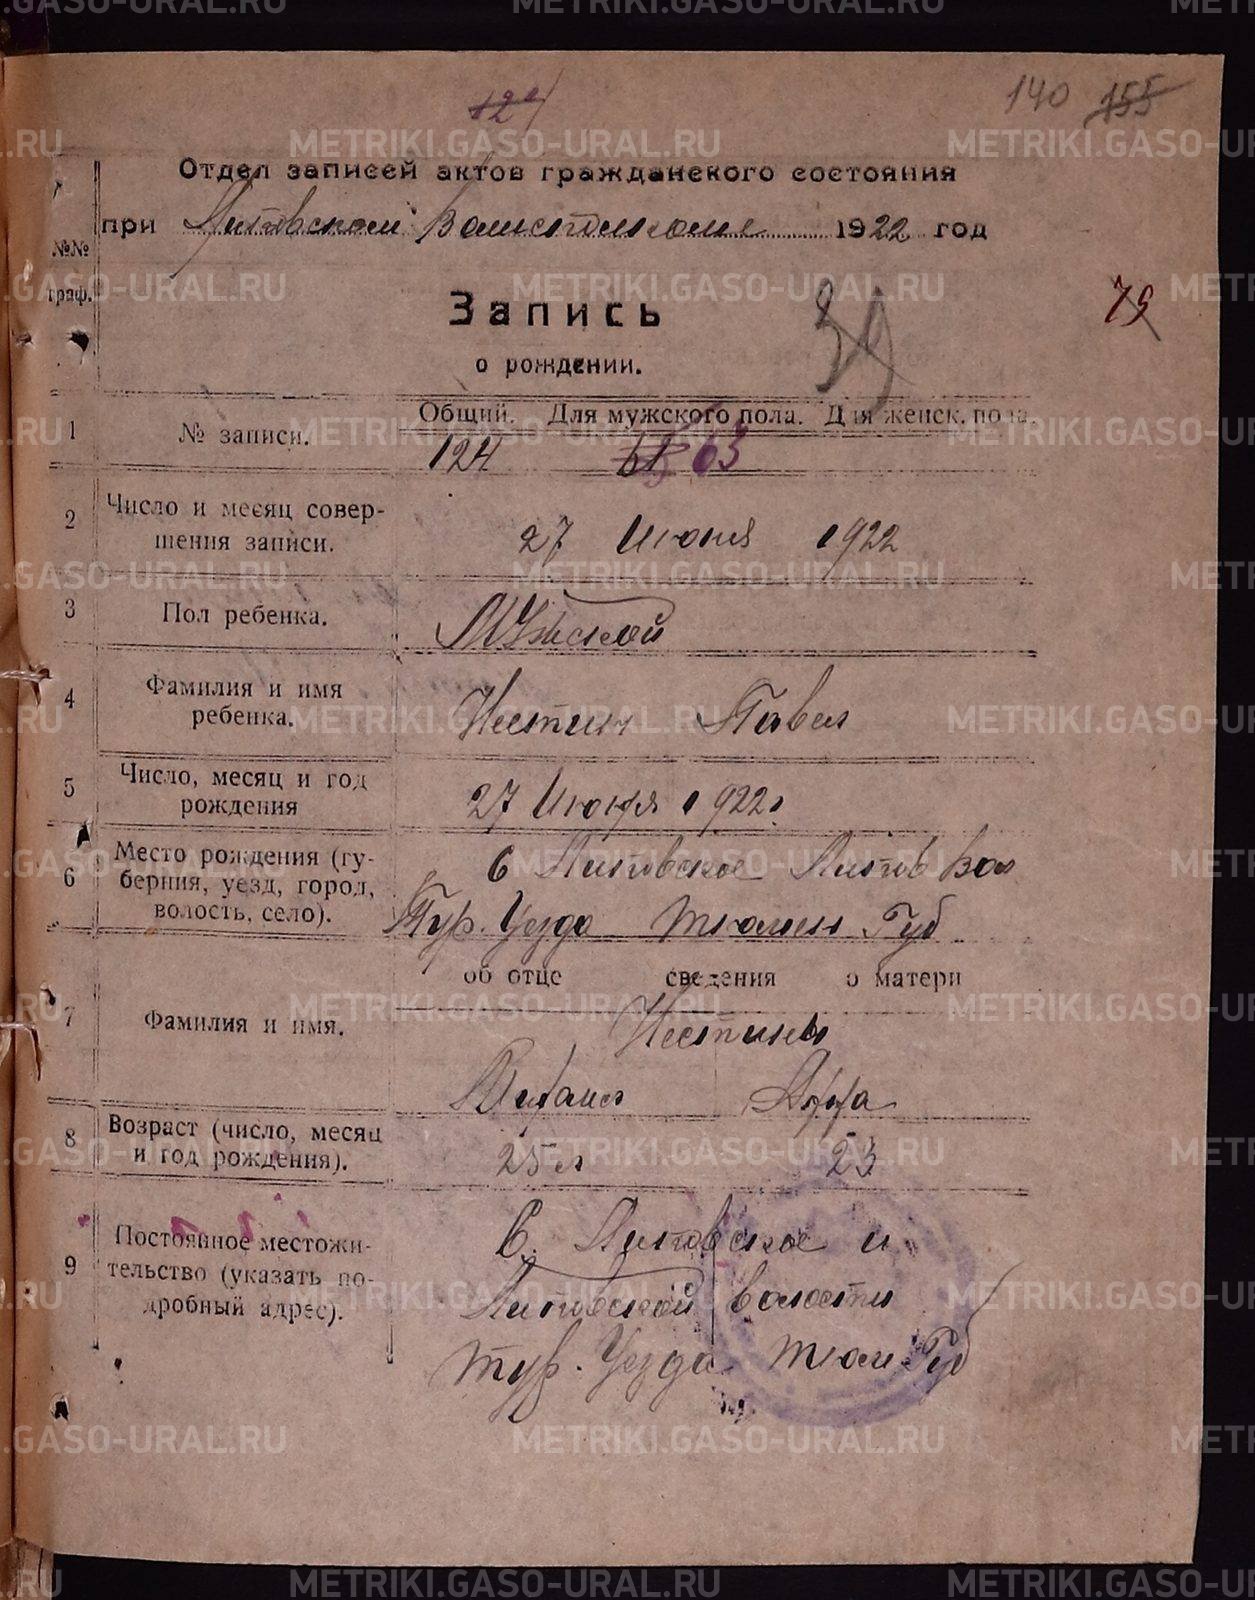 124
140 155
Отдел записей актов гражданского состояния
при Липовском Волисполкоме 1922 год
№№ граф.
Запись
39
79
о рождении.
Общий. Для мужского пола. Для женск. пола.
1 № записи. 124 61 63
2 Число и месяц совер-
шения записи. 27 Июня 1922
3 Пол ребенка. Мужской
4 Фамилия и имя
ребенка. Нестин Павел
5 Число, месяц и год
рождения 27 Июня 1922г
6 Место рождения (гу-
берния, уезд, город,
волость, село). С Липовское Липов Вол
Тур. Уезда Тюмен Губ
об отце сведения о матери
7 Фамилия и имя. Нестины
Анна
8 Возраст (число, месяц
и год рождения). 25 л 23
9 Постоянное местожи-
тельство (указать по-
дробный адрес). С. Липовское и
Липовской волости
Тур. Уезда Тюм Губ
METRIKI.GASO-URAL.RU